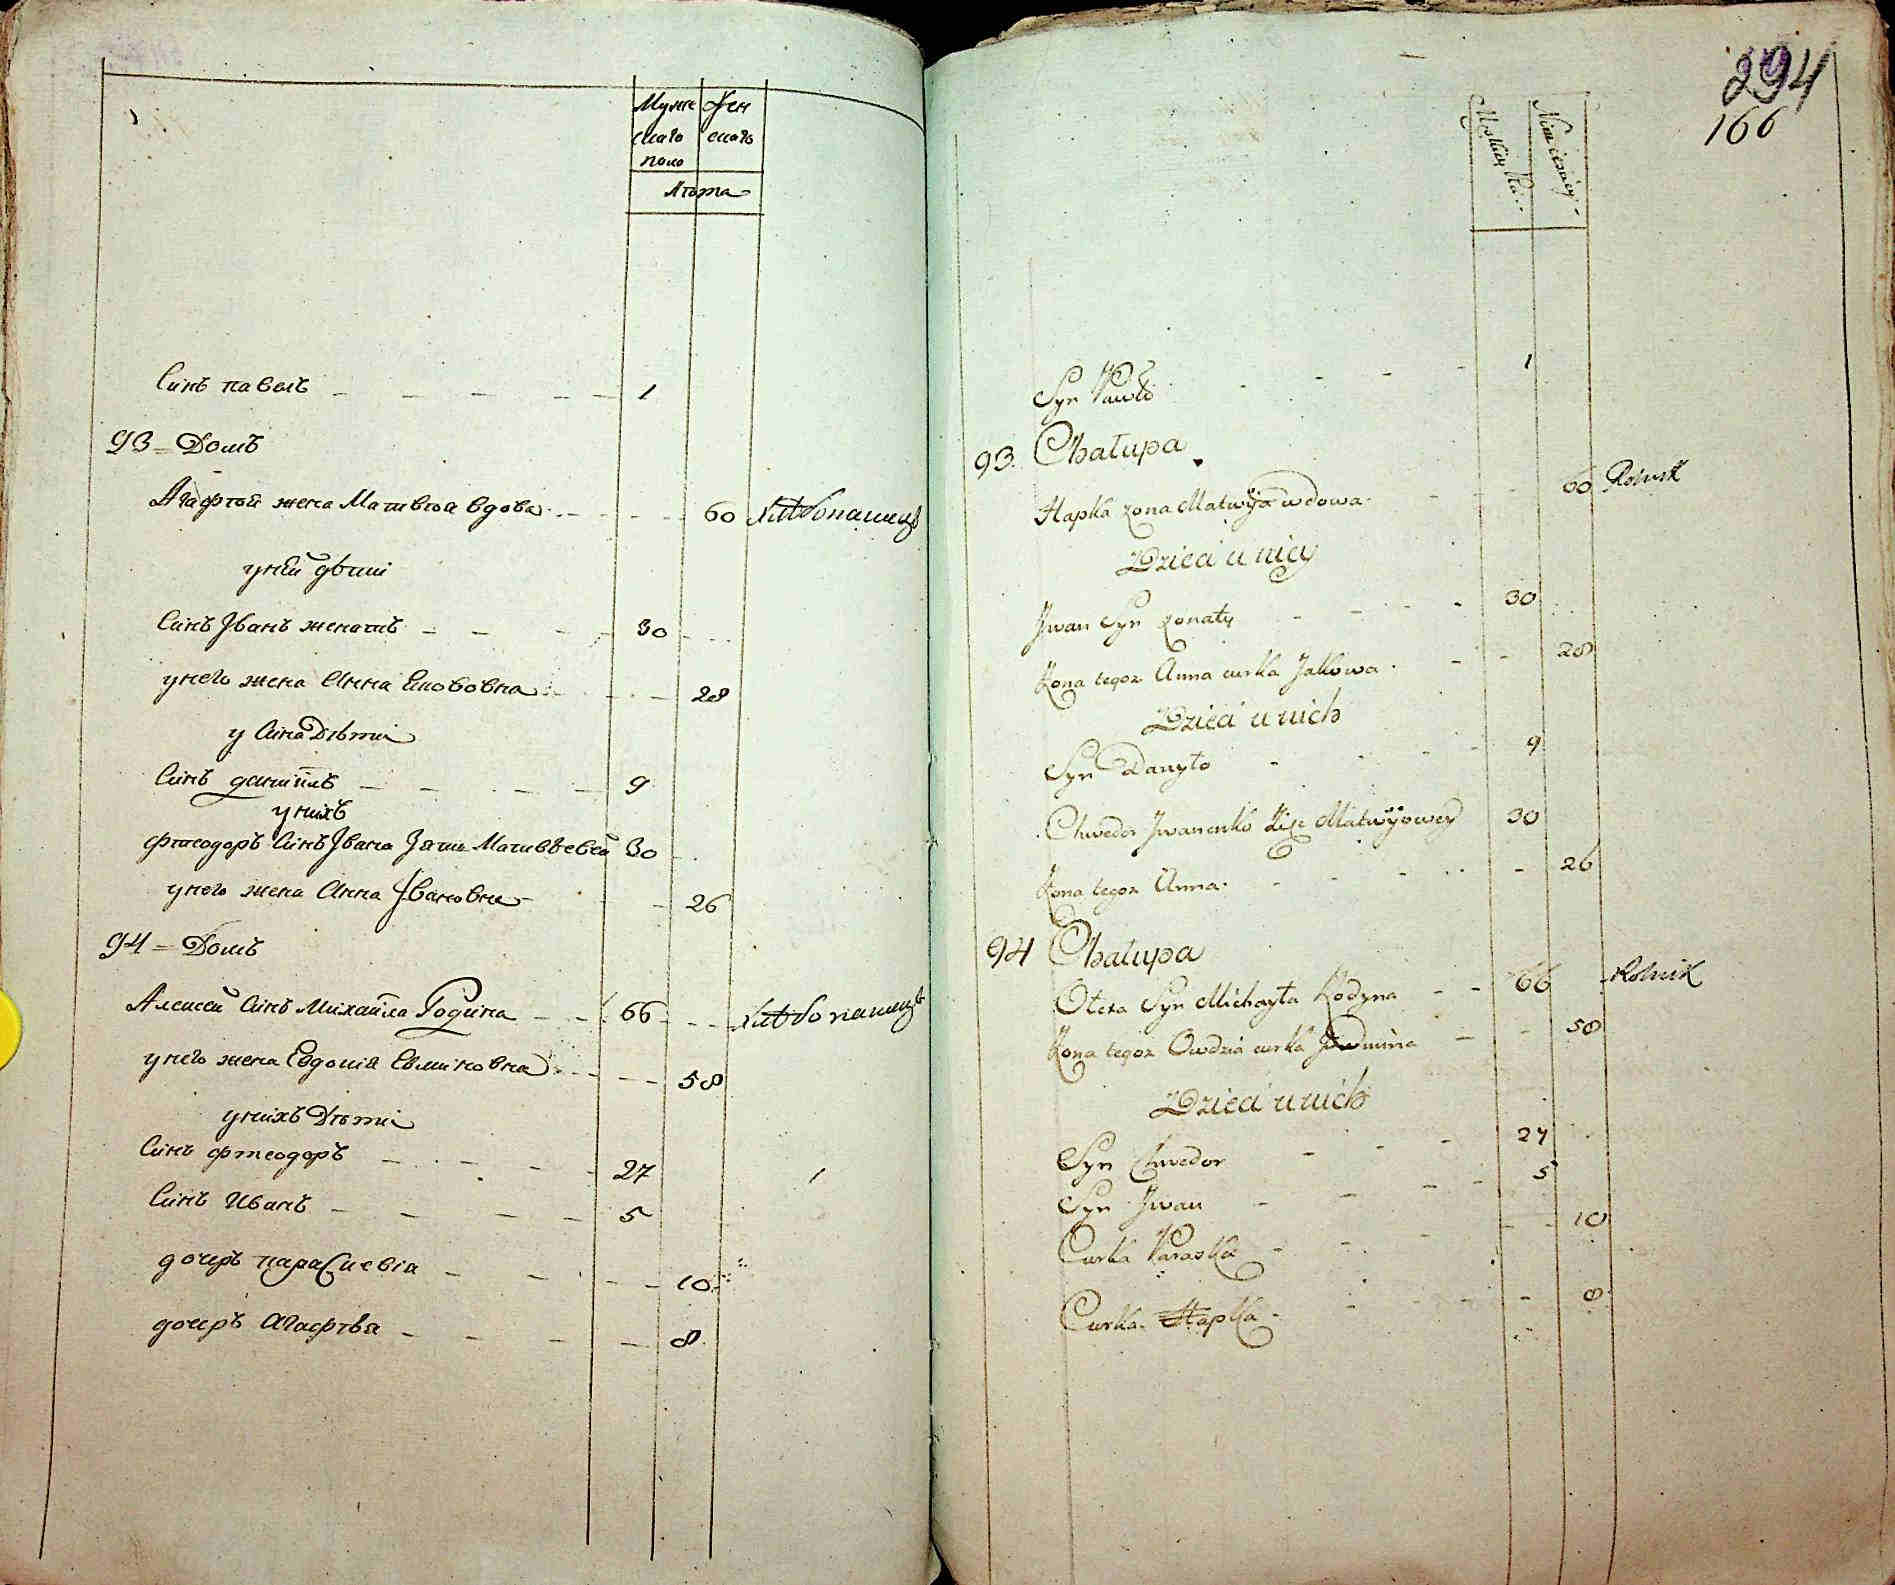 Муже Жен
скаго скаго
пола
Лѣта
Синъ павелъ 1
93 Домъ
Агафтой жена Матвѣя вдова 60 хлѣбопашецъ
у ней дѣти
Синъ Іванъ женатъ 30
у него жена Анна Якововна 28
у Сина Дѣти
Синъ даніилъ 9
у нихъ
фтеодоръ Синъ Івана Зять Матвѣевей 30
у него жена Анна Івановна 26
94 Домъ
Алексей Синъ Михаила Родина 66 хлѣбопашецъ
у него жена Евдокія Евминовна 58
у нихъ Дѣти
Синъ фтеодоръ 27
Синъ Иванъ 5
дочеръ параскевія 10
дочеръ Агафтвя 8
294
166
Męskiey
Niewiesciey
Syn Pawło 1
93. Chałupa
Hapka żona Matwÿja wdowa 60 Rolnik
Dzieci u niey
Jwan Syn żonaty 30
Żona tegoż Anna curka Jakowa 28
Dzieci u nich
Syn Danyło 9
Chwedor Jwanenko Zięc Matwÿjowey 30
Żona tegoż Anna 26
94 Chałupa
Olexa Syn Michayła Rodyna 66 Rolnik
Żona tegoż Owdzia curka 58
Dzieci u nich
Syn Chwedor 27
Syn Jwan 5
Curka Paraska 10
Curka Hapka 8